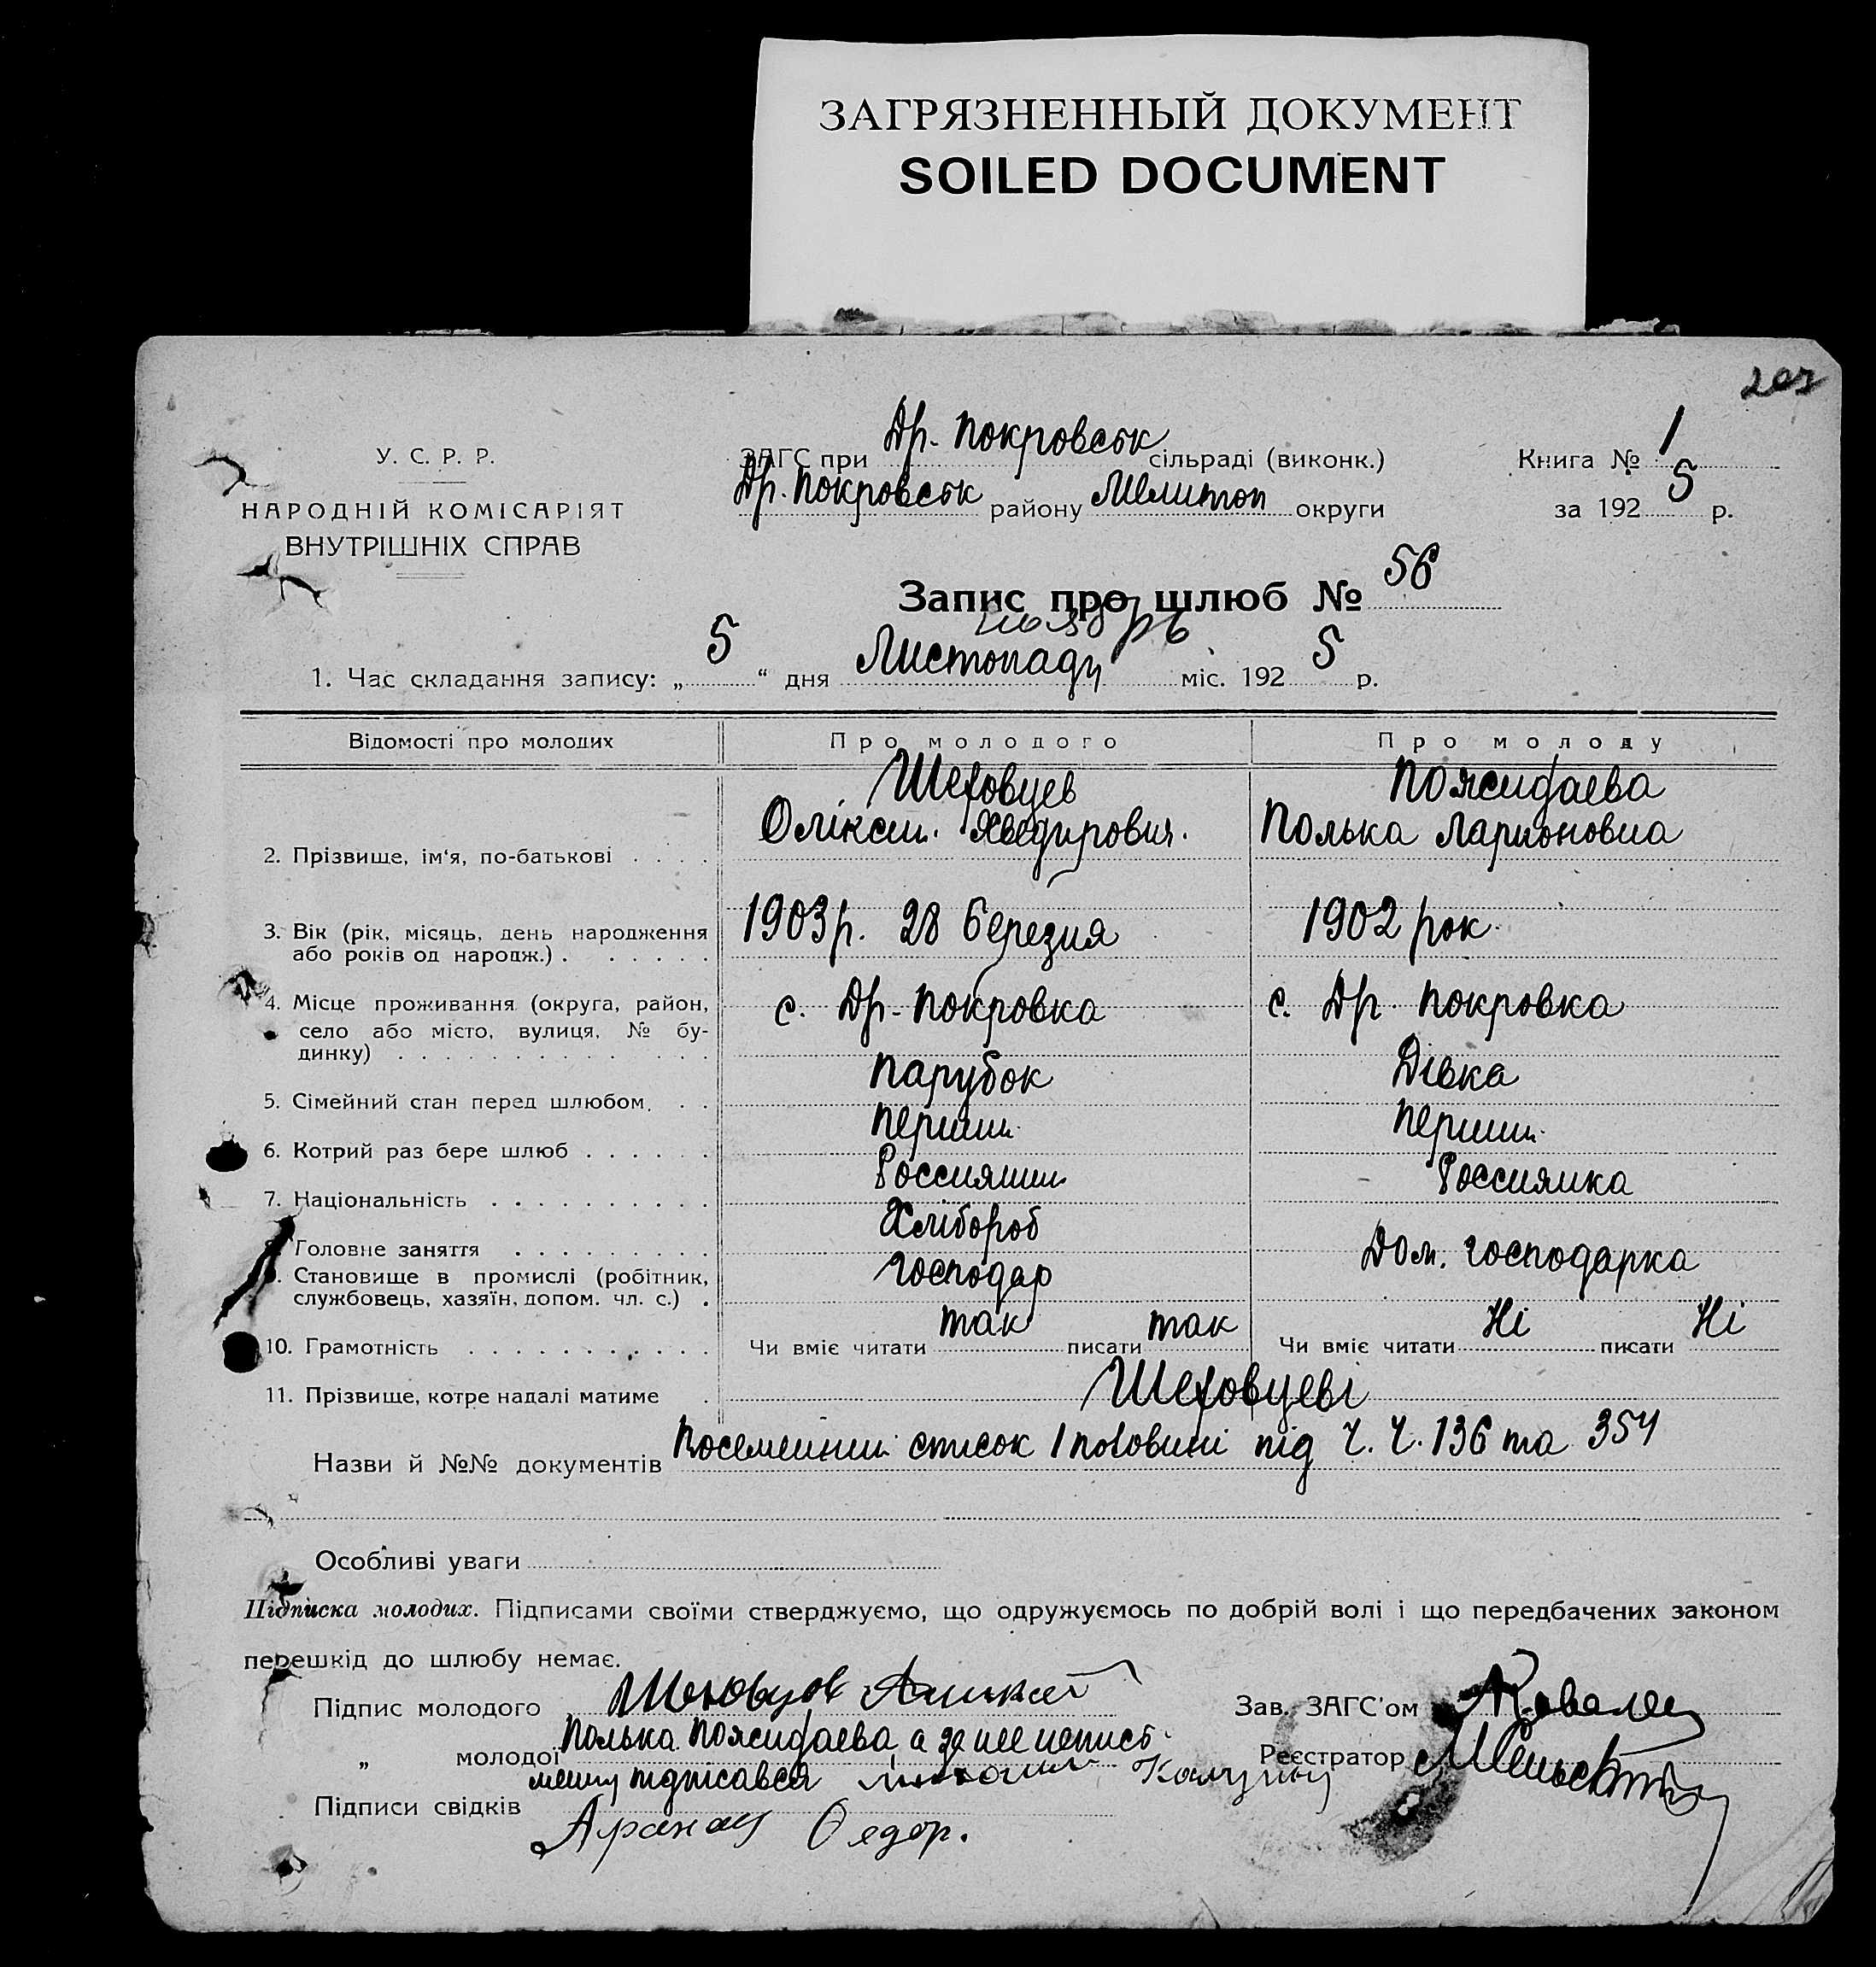 ЗАГРЯЗНЕННЫЙ ДОКУМЕНТ
SOILED DOCUMENT
203
У. С. Р. Р.
НАРОДНІЙ КОМІСАРІЯТ
ВНУТРІШНІХ СПРАВ
ЗАГС при Др. Покровськ сільраді (виконк.)
Др. Покровськ району Мелитоп округи
Книга № 1
за 192 5 р.
Запис про шлюб № 56
ноябрь
1. Час складання запису: „ 5 “ дня Листопаду міс. 192 5 р.
Відомості про молодих Про молодого Про молоду
Шеховцев Пожидаева
2. Прізвище, ім‘я, по-батькові . . . . Оліксій Хведирович. Полька Ларионовна
3. Вік (рік, місяць, день народження 1903 р. 28 березня 1902 рок
або років од народж.) . . . . . .
4. Місце проживання (округа, район, с. Др. Покровка с. Др. Покровка
село або місто, вулиця, № бу-
динку) . . . . . . . . . . . .
5. Сімейний стан перед шлюбом. . . Парубок Дівка
6. Котрий раз бере шлюб . . . . . . Перший Перший
7. Національність . . . . . . . . . Россиянин Россиянка
8. Головне заняття . . . . . . . . . Хлібороб Дом. господарка
9. Становище в промислі (робітник, господар
службовець, хазяїн, допом. чл. с.) .
10. Грамотність . . . . . . . . . . . Чи вміє читати так писати так Чи вміє читати Ні писати Ні
11. Прізвище, котре надалі матиме . Шеховцеві
Назви й №№ документів Посемейний список 1 половини під Ч. Ч. 136 та 354
Особливі уваги
Підписка молодих. Підписами своїми стверджуємо, що одружуємось по добрій волі і що передбачених законом
перешкід до шлюбу немає.
Підпис молодого Шеховцов Аликсей
„ молодої Полька Пожидаева, а за нее неписъ-
менну підписався
Підписи свідків
Зав. ЗАГС'ом
Реєстратор